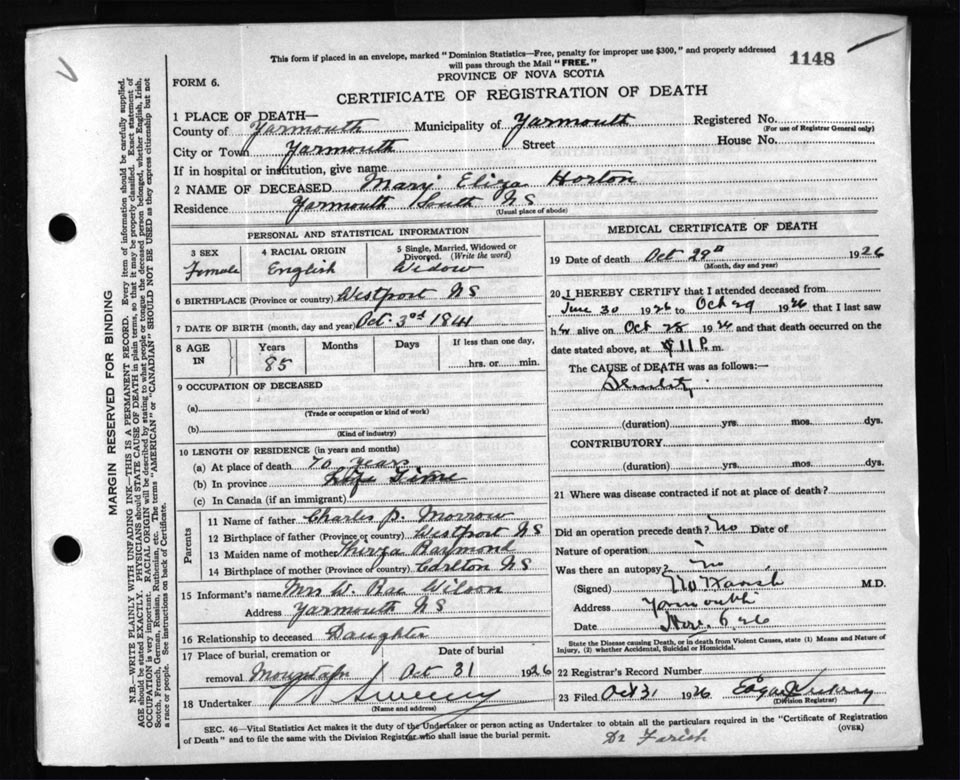 This form if placed in an envelope, marked "Dominion Statistics—Free, penalty for improper use $300," and properly addressed
will pass through the Mail "FREE."
1148
FORM 6.
PROVINCE OF NOVA SCOTIA
CERTIFICATE OF REGISTRATION OF DEATH
1 PLACE OF DEATH—
County of Yarmouth Municipality of Yarmouth Registered No.
(For use of Registrar General only)
City or Town Yarmouth Street House No.
If in hospital or institution, give name
2 NAME OF DECEASED Mary Eliza Horton
Residence Yarmouth South NS
(Usual place of abode)
PERSONAL AND STATISTICAL INFORMATION
3 SEX 4 RACIAL ORIGIN 5 Single, Married, Widowed or
Divorced. (Write the word)
Female English Widow
6 BIRTHPLACE (Province or country) Westport NS
7 DATE OF BIRTH (month, day and year) Oct 3rd 1841
8 AGE IN Years Months Days If less than one day,
85 hrs. or min.
9 OCCUPATION OF DECEASED
(a)
(Trade or occupation or kind of work)
(b)
(Kind of industry)
10 LENGTH OF RESIDENCE (in years and months)
(a) At place of death 70 years
(b) In province Life Time
(c) In Canada (if an immigrant)
Parents
11 Name of father Charles P. Morrow
12 Birthplace of father (Province or country) Westport NS
13 Maiden name of mother Thirza Raymond
14 Birthplace of mother (Province or country) Carlton NS
15 Informant's name Mrs W. Rae Wilson
Address Yarmouth NS
16 Relationship to deceased Daughter
17 Place of burial, cremation or Date of burial
removal Mountain Oct 31 1926
18 Undertaker Sweeny
(Name and address)
MEDICAL CERTIFICATE OF DEATH
19 Date of death Oct 29th 1926
(Month, day and year)
20 I HEREBY CERTIFY that I attended deceased from
June 30 1926 to Oct 29 1926 that I last saw
her alive on Oct 28 1926 and that death occurred on
date stated above, at 11 P. m.
The CAUSE of DEATH was as follows:—
Senility
(duration) yrs. mos. dys.
CONTRIBUTORY
(duration) yrs. mos. dys.
21 Where was disease contracted if not at place of death?
Did an operation precede death? No Date of
Nature of operation
Was there an autopsy? No
(Signed) Farish M.D.
Address Yarmouth
Date Nov. 6 26
State the Disease causing Death, or in death from Violent Causes, state (1) Means and Nature of
Injury, (2) whether Accidental, Suicidal or Homicidal.
22 Registrar's Record Number
23 Filed Oct 31 1926 Edgar
(Division Registrar)
SEC. 46—Vital Statistics Act makes it the duty of the Undertaker or person acting as Undertaker to obtain all the particulars required in the "Certificate of Registration
of Death" and to file the same with the Division Registrar who shall issue the burial permit. (OVER)
Dr Farish
MARGIN RESERVED FOR BINDING
N.B.—WRITE PLAINLY WITH UNFADING INK—THIS IS A PERMANENT RECORD. Every item of information should be carefully supplied.
AGE should be stated EXACTLY. PHYSICIANS should STATE CAUSE OF DEATH in plain terms, so that it may be properly classified. Exact statement of
OCCUPATION is very important. RACIAL ORIGIN will be described by stating to what people or tongue the deceased person belonged, whether English, Irish,
Scotch, French, German, Russian, Ruthenian, etc. The terms "AMERICAN" or "CANADIAN" SHOULD NOT BE USED as they express citizenship but not
a race or people. See instructions on back of Certificate.